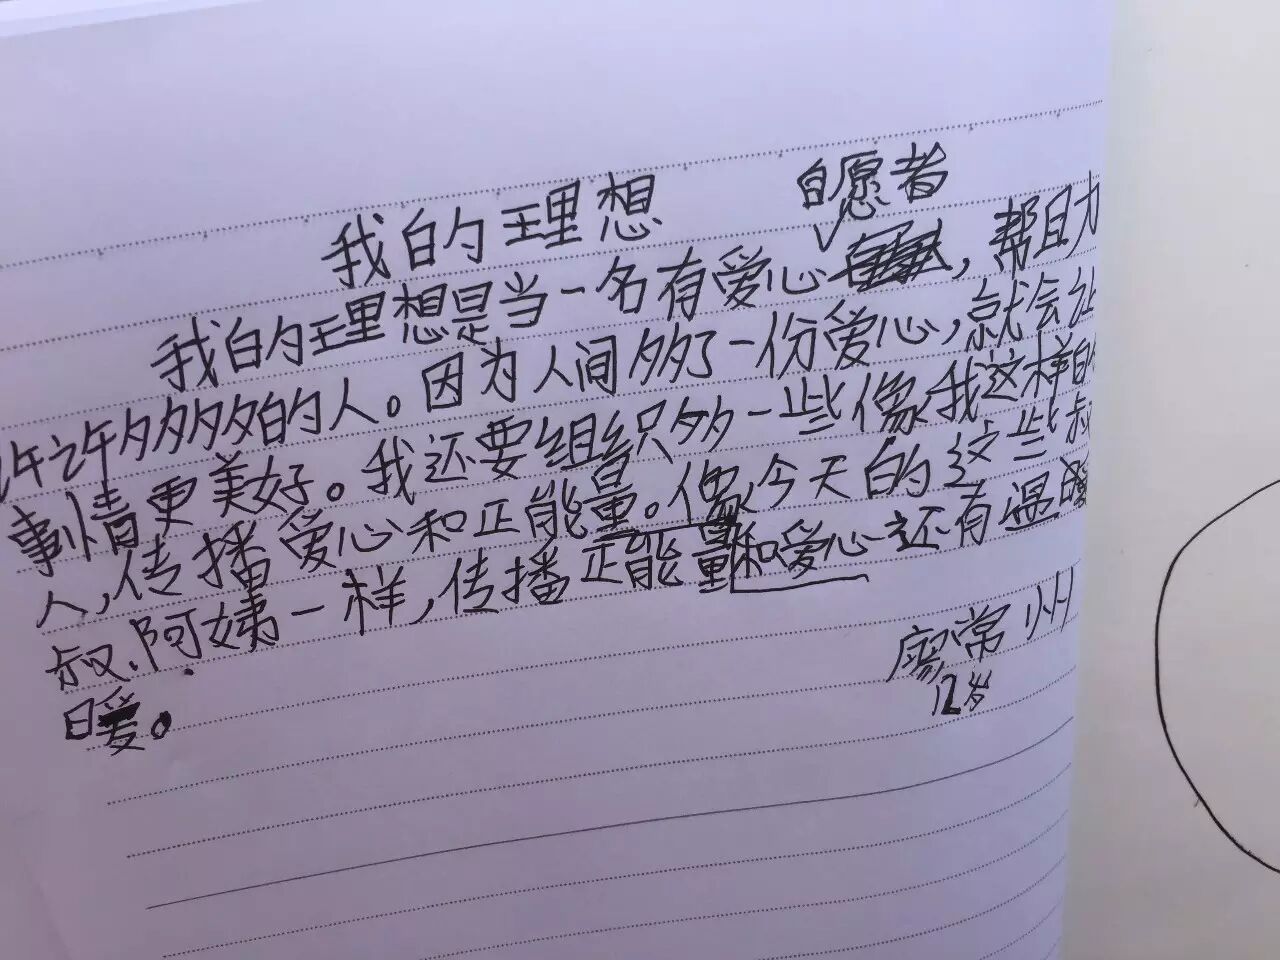 我的理想
自愿者
我的理想是当一名有爱心，帮助
许许多多多的人。因为人间多了一份爱心，就会让
事情更美好。我还要组织多一些像我这样的
人，传播爱心和正能量。像今天的这些叔
叔、阿姨一样，传播正能量和爱心还有温
暖。
廖常州
12岁